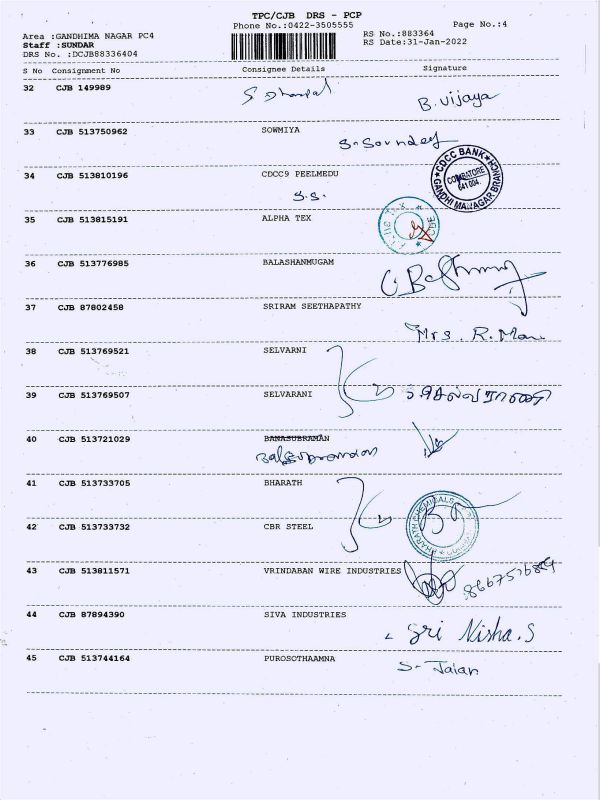 TPC/CJB DRS - PCP
Phone No.:0422-3505555 Page No.:4
Area :GANDHIMA NAGAR PC4 RS No.:883364
Staff :SUNDAR RS Date:31-Jan-2022
DRS No. :DCJB88336404
S No Consignment No Consignee Details Signature
32 CJB 149989 S Dhanpal B. Vijaya
33 CJB 513750962 SOWMIYA
34 CJB 513810196 CDCC9 PEELMEDU
S.S.
CDCC BANK
COIMBATORE
641 004.
GANDHI MANAGAR BRANCH
35 CJB 513815191 ALPHA TEX
36 CJB 513776985 BALASHANMUGAM
37 CJB 87802458 SRIRAM SEETHAPATHY
Mrs. R.
38 CJB 513769521 SELVARNI
39 CJB 513769507 SELVARANI
40 CJB 513721029 BANASUBRAMAN
41 CJB 513733705 BHARATH
BHARATH CHEMICALS
42 CJB 513733732 CBR STEEL
43 CJB 513811571 VRINDABAN WIRE INDUSTRIES
44 CJB 87894390 SIVA INDUSTRIES
Sri Nisha.S
45 CJB 513744164 PUROSOTHAAMNA